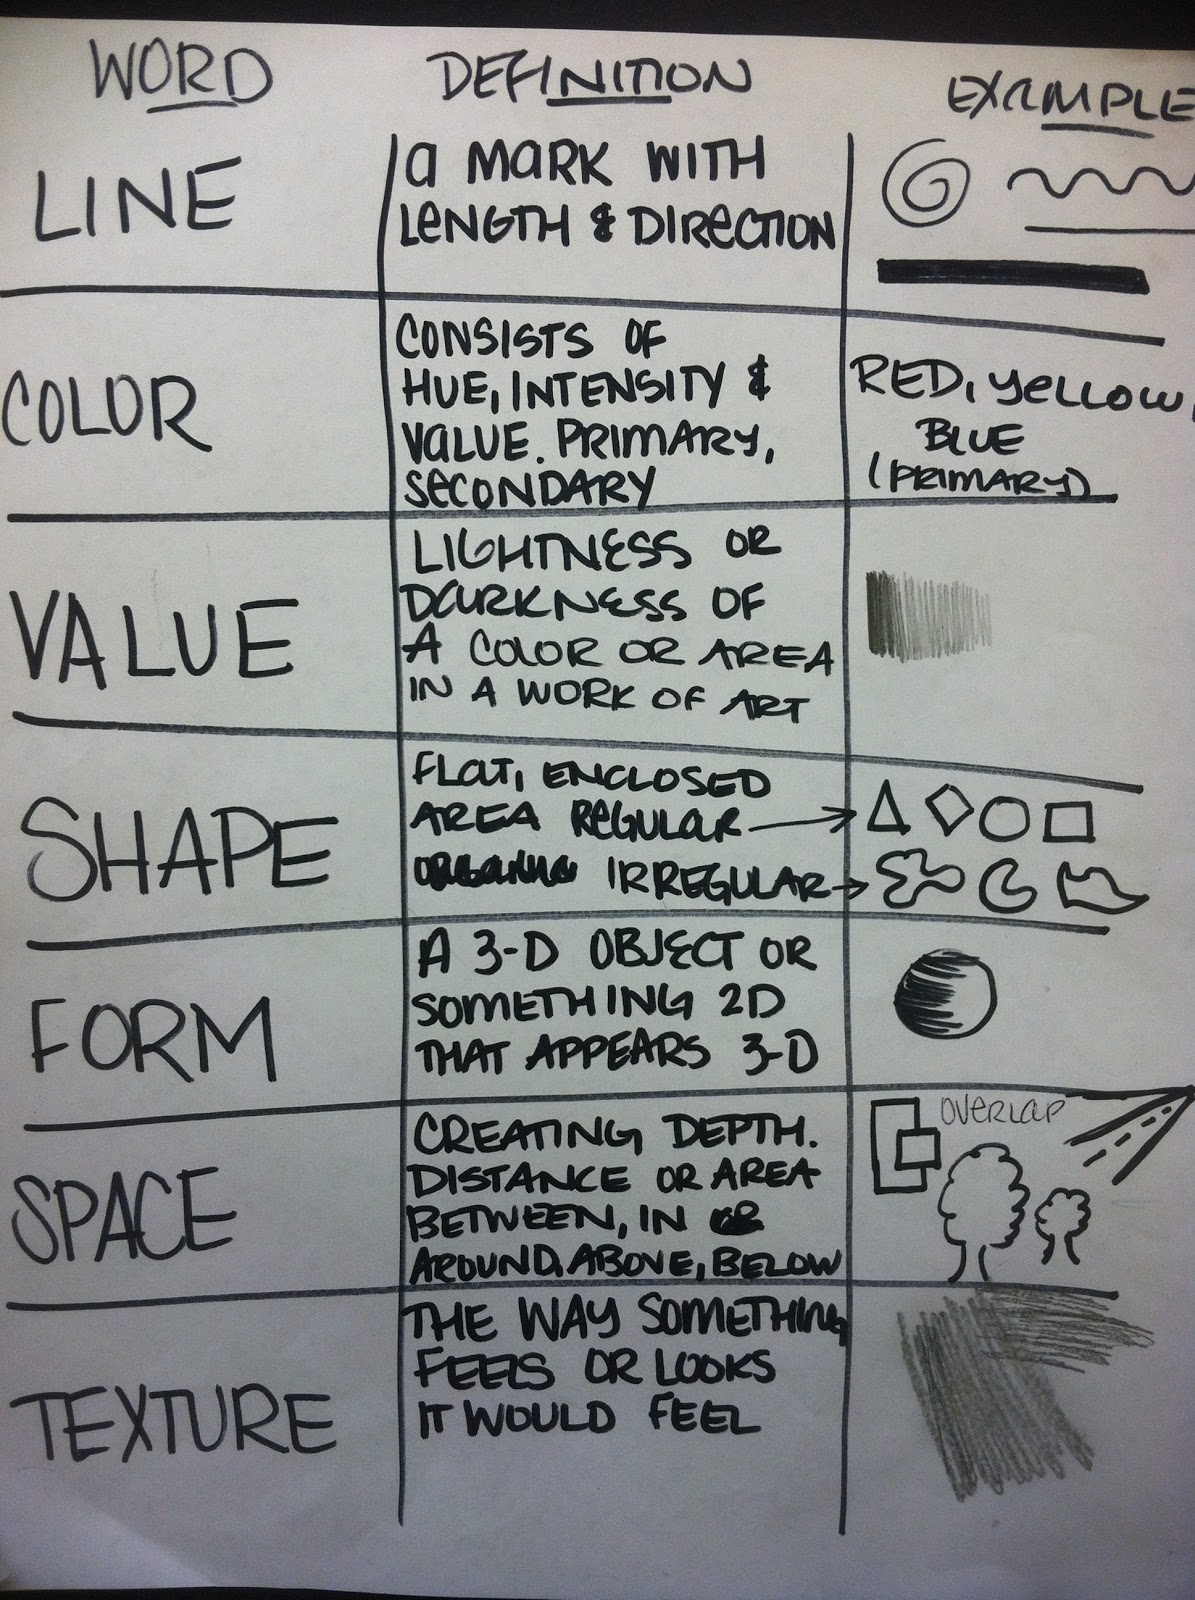 WORD DEFINITION EXAMPLE
LINE
a MARK WITH
LENGTH & DIRECTION
COLOR
CONSISTS OF
HUE, INTENSITY &
VALUE. PRIMARY,
SECONDARY
RED, YELLOW,
BLUE
(PRIMARY)
VALUE
LIGHTNESS OR
DARKNESS OF
A COLOR OR AREA
IN A WORK OF ART
SHAPE
FLAT, ENCLOSED
AREA REGULAR
IRREGULAR
FORM
A 3-D OBJECT OR
SOMETHING 2D
THAT APPEARS 3-D
SPACE
CREATING DEPTH.
DISTANCE OR AREA
BETWEEN, IN OR
AROUND, ABOVE, BELOW
OVERLAP
TEXTURE
THE WAY SOMETHING
FEELS OR LOOKS
IT WOULD FEEL